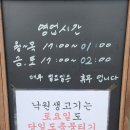 영업시간
월~목 17:00 ~ 01:00
금.토 17:00 ~ 02:00
매주 일요일은 휴무 입니다
낙원생고기는
토요일도
당일도축풀터기